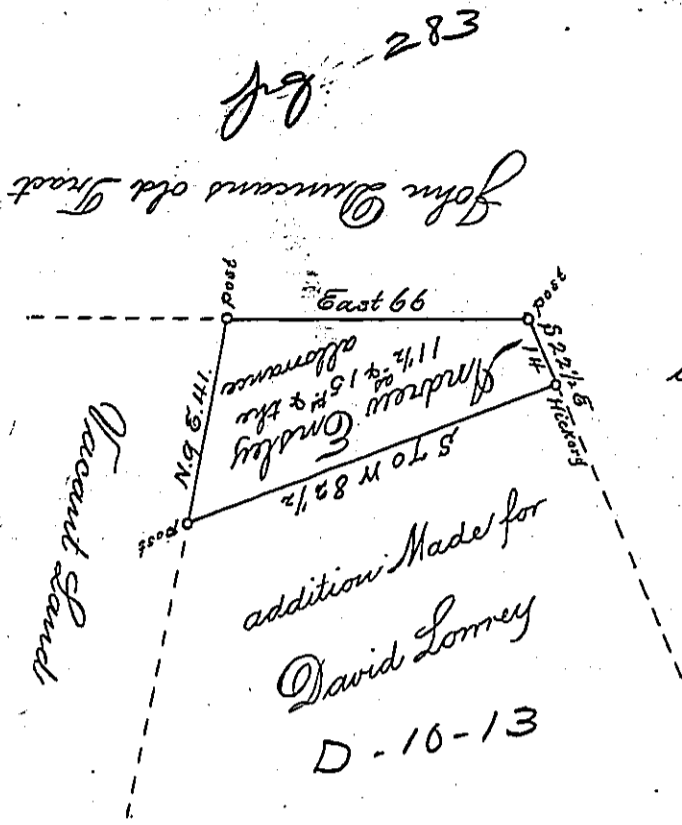 283
John Duncans old Tract
post
post
99 East
S 22 1/2 E
14
Hickory
N 9 E 41
Andrew Ensley
11 1/2 as & 15 ps & the
allowance
S 70 W 82 1/2
post
Vacant Land
addition Made for
David Lowrey
D-10-13